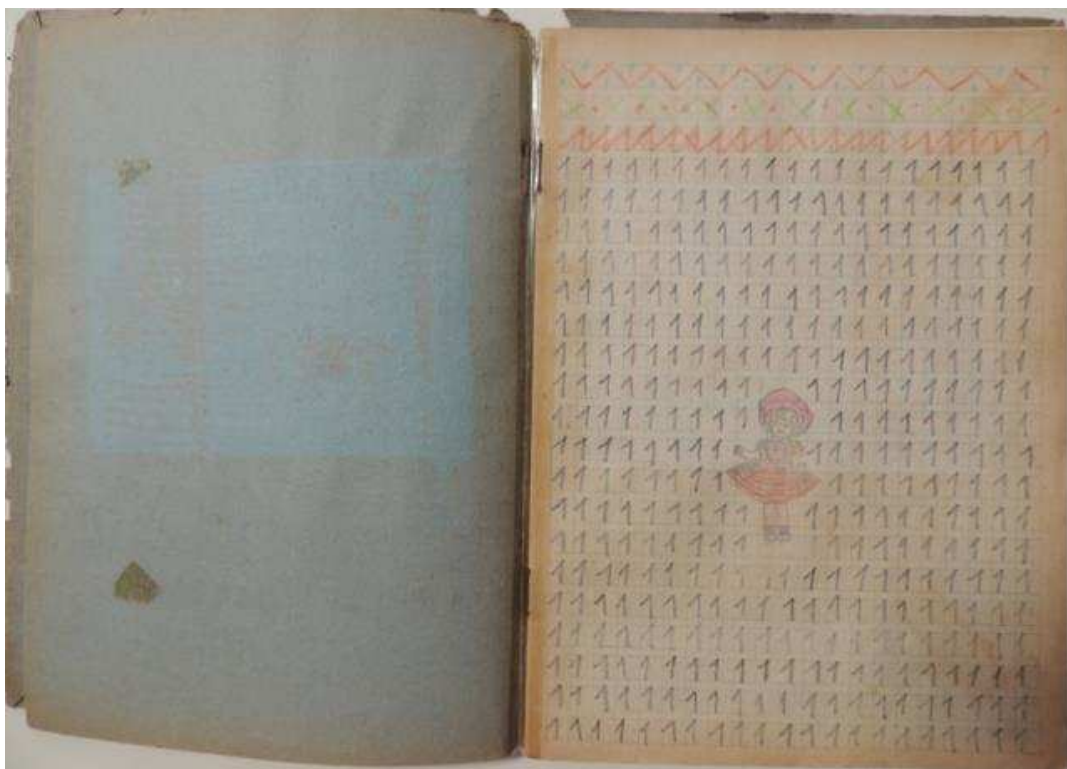 1 1 1 1 1 1 1 1 1 1 1 1 1 1 1 1 1 1 1 1 1
1 1 1 1 1 1 1 1 1 1 1 1 1 1 1 1 1 1 1 1 1 1
1 1 1 1 1 1 1 1 1 1 1 1 1 1 1 1 1 1 1 1 1 1
1 1 1 1 1 1 1 1 1 1 1 1 1 1 1 1 1 1 1 1 1 1
1 1 1 1 1 1 1 1 1 1 1 1 1 1 1 1 1 1 1 1 1 1
1 1 1 1 1 1 1 1 1 1 1 1 1 1 1 1 1 1 1 1 1 1
1 1 1 1 1 1 1 1 1 1 1 1 1 1 1 1 1 1 1 1 1
1 1 1 1 1 1 1 1 1 1 1 1 1 1 1 1 1 1 1
1 1 1 1 1 1 1 1 1 1 1 1 1 1 1 1 1 1
1 1 1 1 1 1 1 1 1 1 1 1 1 1 1 1 1 1
1 1 1 1 1 1 1 1 1 1 1 1 1 1 1 1 1
1 1 1 1 1 1 1 1 1 1 1 1 1 1 1 1 1 1 1
1 1 1 1 1 1 1 1 1 1 1 1 1 1 1 1 1 1
1 1 1 1 1 1 1 1 1 1 1 1 1 1 1 1 1 1 1 1 1
1 1 1 1 1 1 1 1 1 1 1 1 1 1 1 1 1 1 1 1 1
1 1 1 1 1 1 1 1 1 1 1 1 1 1 1 1 1 1 1 1 1
1 1 1 1 1 1 1 1 1 1 1 1 1 1 1 1 1 1 1 1 1
1 1 1 1 1 1 1 1 1 1 1 1 1 1 1 1 1 1 1 1 1
1 1 1 1 1 1 1 1 1 1 1 1 1 1 1 1 1 1 1 1 1